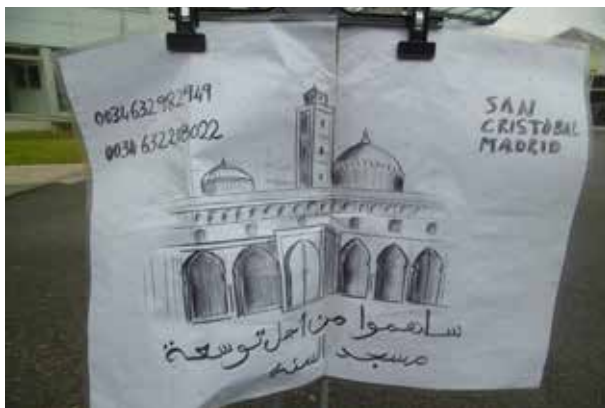 0034632982949
0034632218022
SAN
CRISTÓBAL
MADRID
ساهموا من اجل توسعة
مسجد السنه